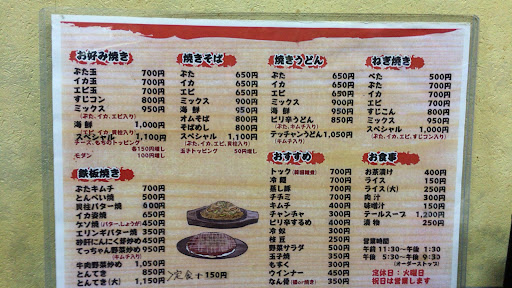 お好み焼き
ぶた玉 700円
イカ玉 700円
エビ玉 700円
すじコン 800円
ミックス 950円
(ぶた、イカ、エビ入り)
海鮮 1,000円
(エビ、イカ、貝柱入り)
スペシャル 1,100円
チーズ、もちのトッピング
各150円増し
モダン 100円増し
焼きそば
ぶた 650円
イカ 650円
エビ 650円
ミックス 900円
海鮮 950円
オムそば 800円
そばめし 800円
スペシャル 1,100円
(ぶた、イカ、エビ、貝柱入り)
玉子トッピング 50円増し
焼きうどん
ぶた 650円
イカ 650円
エビ 650円
ミックス 900円
海鮮 950円
ピリ辛うどん 850円
(ぶた、キムチ入り)
テッチャンうどん 1,050円
(キムチ入り)
ねぎ焼き
ぺた 500円
ぶた 700円
イカ 700円
エビ 700円
すじこん 800円
ミックス 950円
スペシャル 1,000円
(ぶた、イカ、エビ、すじコン入り)
鉄板焼き
ぶたキムチ 700円
とんぺい焼 500円
貝柱バター焼 600円
イカ姿焼 750円
ゲソ焼(バター、しょうが) 450円
エリンギバター焼 450円
砂肝にんにく醤炒め 450円
てっちゃん野菜炒め 950円
(キムチ入り)
牛肉野菜炒め 1,050円
とんてき 850円
とんてき(大) 1,150円
>定食+150円
おすすめ
トック 700円
冷麺 700円
蒸し豚 700円
チヂミ 700円
キムチ 300円
チャンジャ 300円
ピリ辛するめ 300円
冷奴 300円
枝豆 250円
野菜サラダ 500円
玉子焼 500円
もずく 300円
ウインナー 450円
なん骨 450円
お食事
お茶漬け 400円
ライス 150円
ライス(大) 250円
肉汁 300円
味噌汁 150円
テールスープ 1,200円
漬物 250円
営業時間
午前11:30~午後1:30
午後5:30~午後9:30
(オーダーストップ)
定休日:火曜日
祝日は営業します